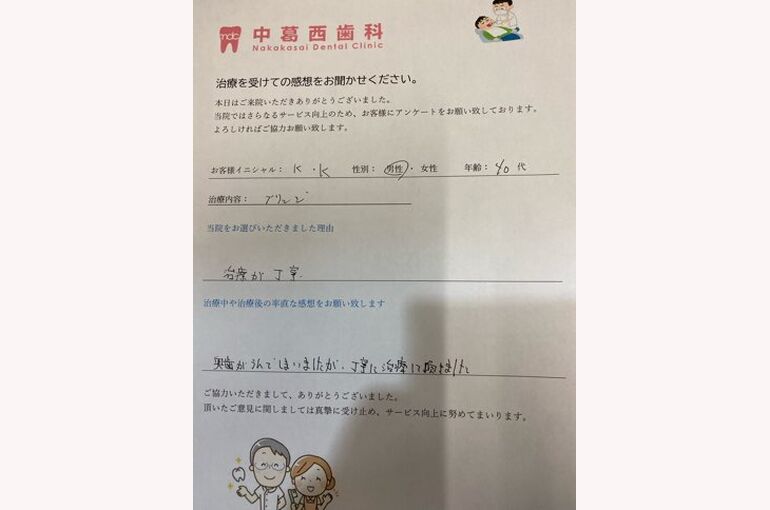 ndc 中葛西歯科
Nakakasai Dental Clinic
治療を受けての感想をお聞かせください。
本日はご来院いただきありがとうございました。
当院ではさらなるサービス向上のため、お客様にアンケートをお願い致しております。
よろしければご協力お願い致します。
お客様イニシャル： K ・K 性別： 男性・女性 年齢：40代
治療内容： ブリッジ
当院をお選びいただきました理由
治療が丁寧
治療中や治療後の率直な感想をお願い致します
奥歯がうんでしまいましたが、丁寧に治療して頂きました
ご協力いただきまして、ありがとうございました。
頂いたご意見に関しましては真摯に受け止め、サービス向上に努めてまいります。